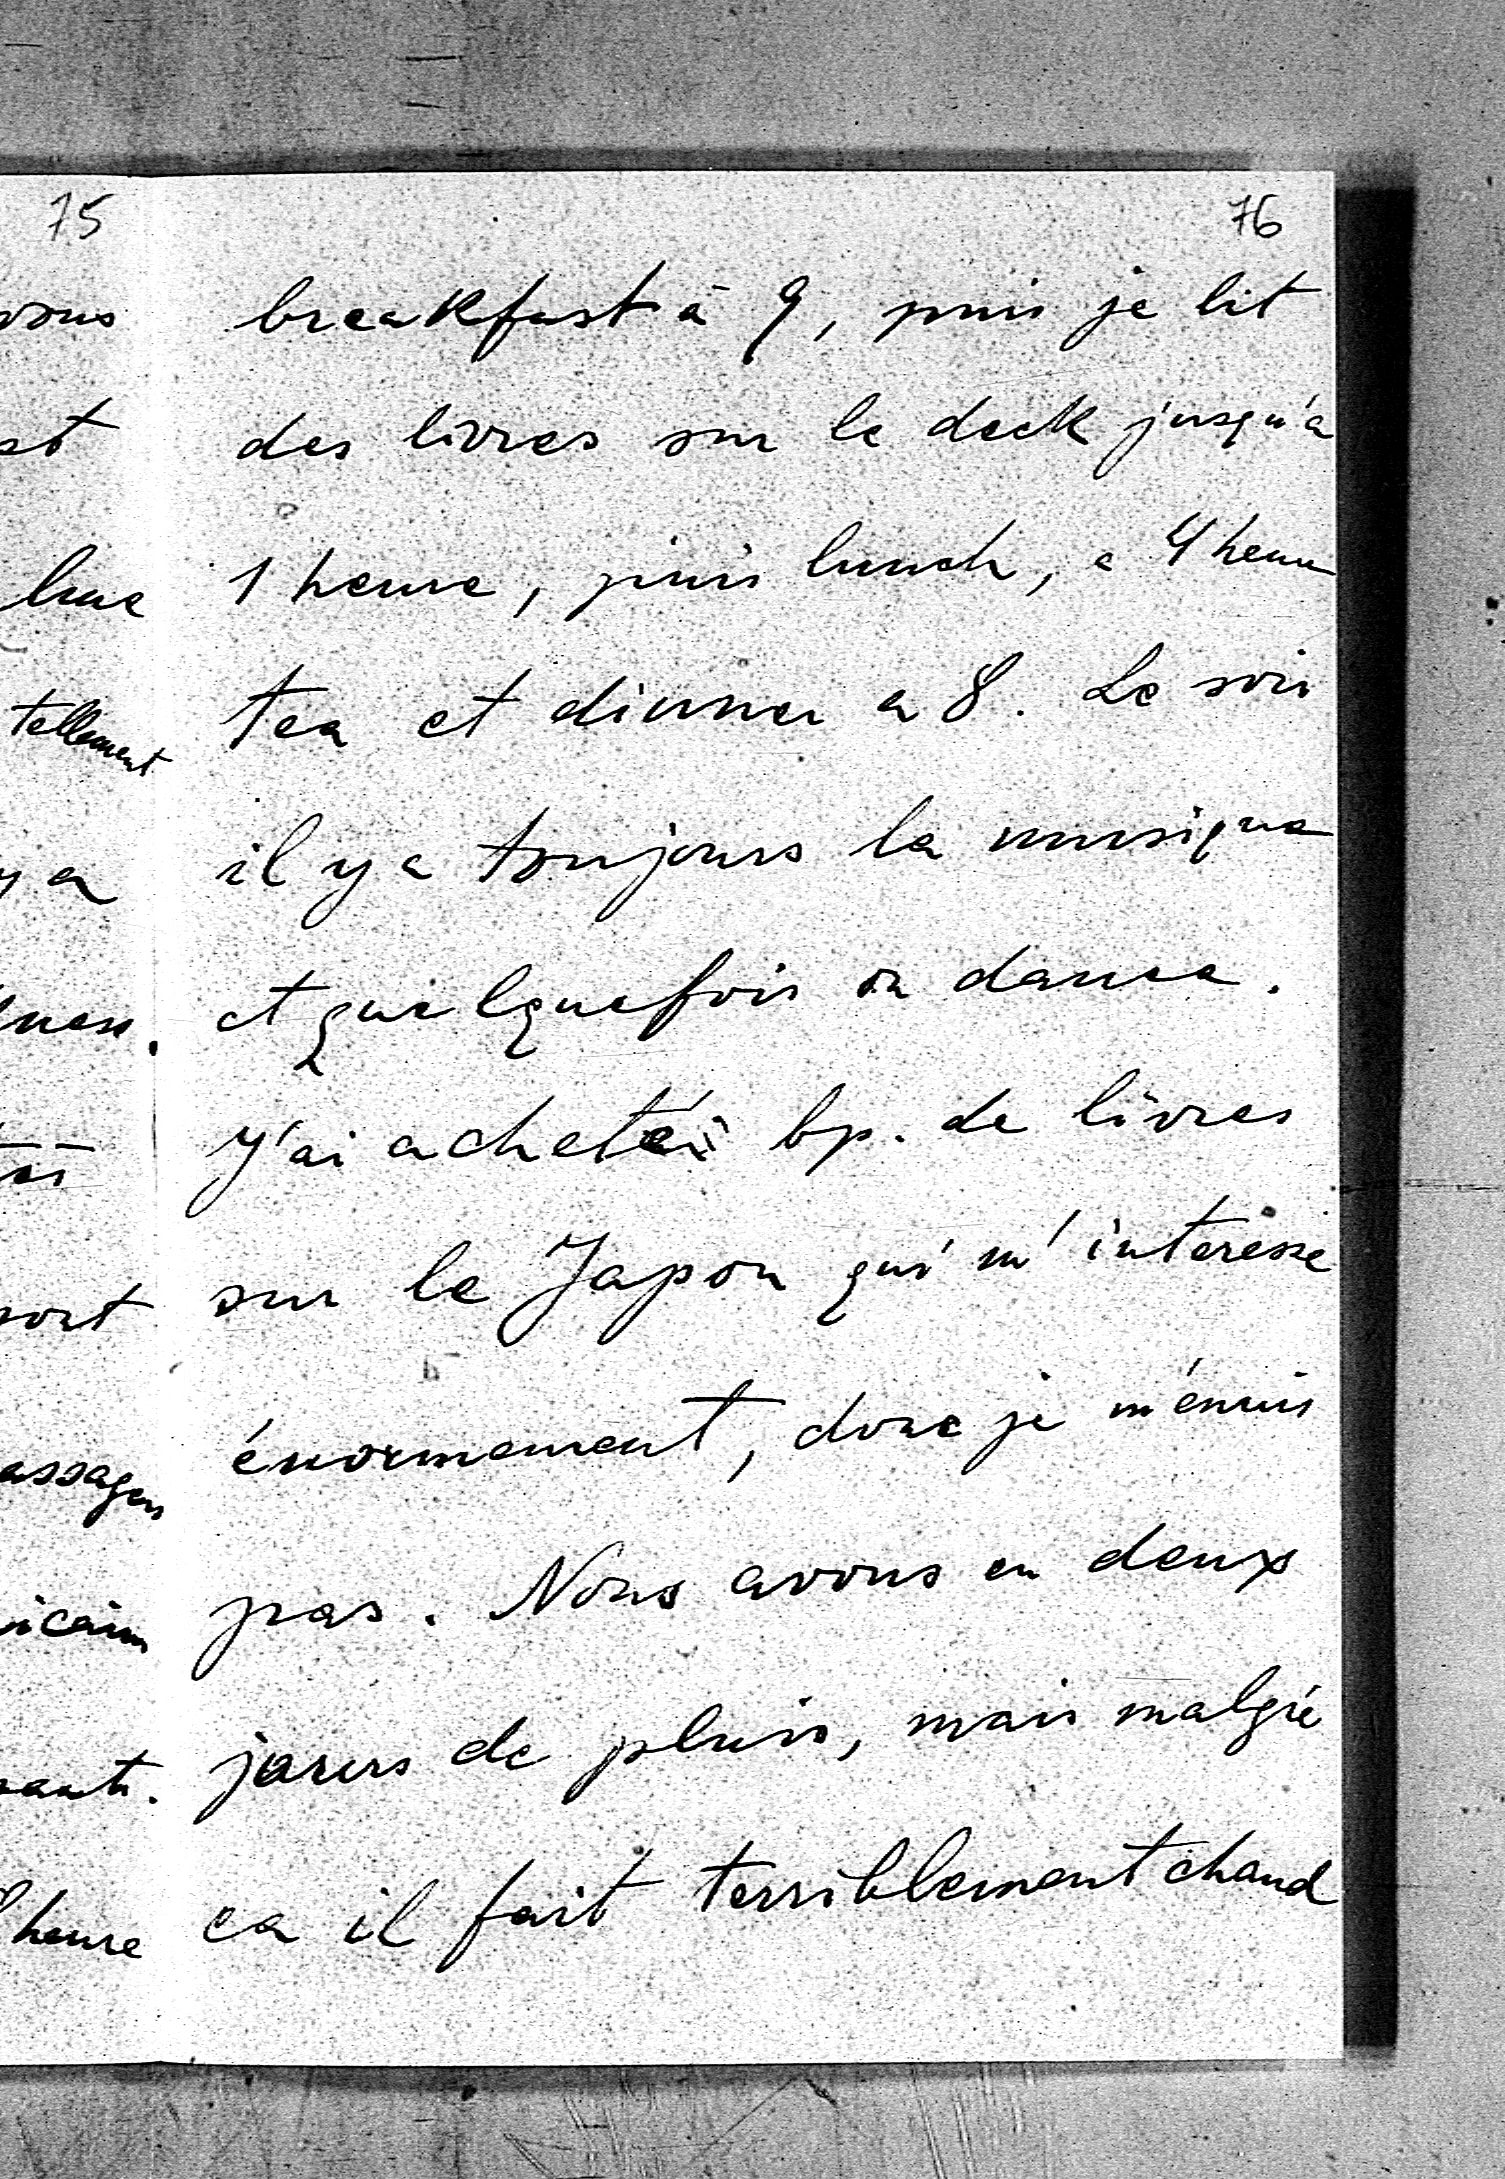 75
vous
st
lune
tellement
y a
lness.
sort
assagers
ricains
sants.
heure
76
breakfast à 9, puis je lit
des livres sur le deck jusqu'a
1 heure, puis lunch, a 4 heure
tea et dinner a 8. Le soir
il y a toujours la musique
et quelquefois on dance.
J'ai acheté bp. de livres
sur le Japon qui m'interesse
énormement, donc je m'énnuis
pas. Nous avons eu deux
jours de pluis, mais malgré
ca il fait terriblement chaud